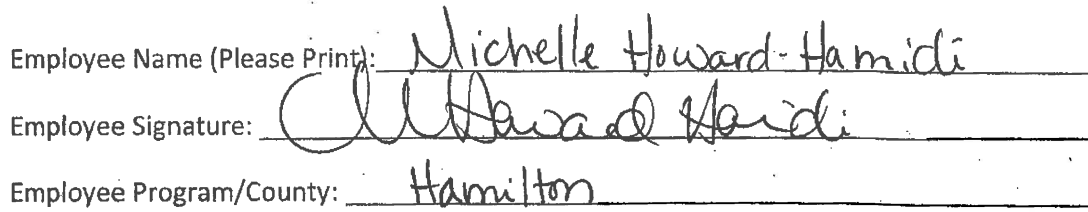 Employee Name (Please Print): Michelle Howard-Hamidi
Employee Signature: M Howard Hamidi
Employee Program/County: Hamilton